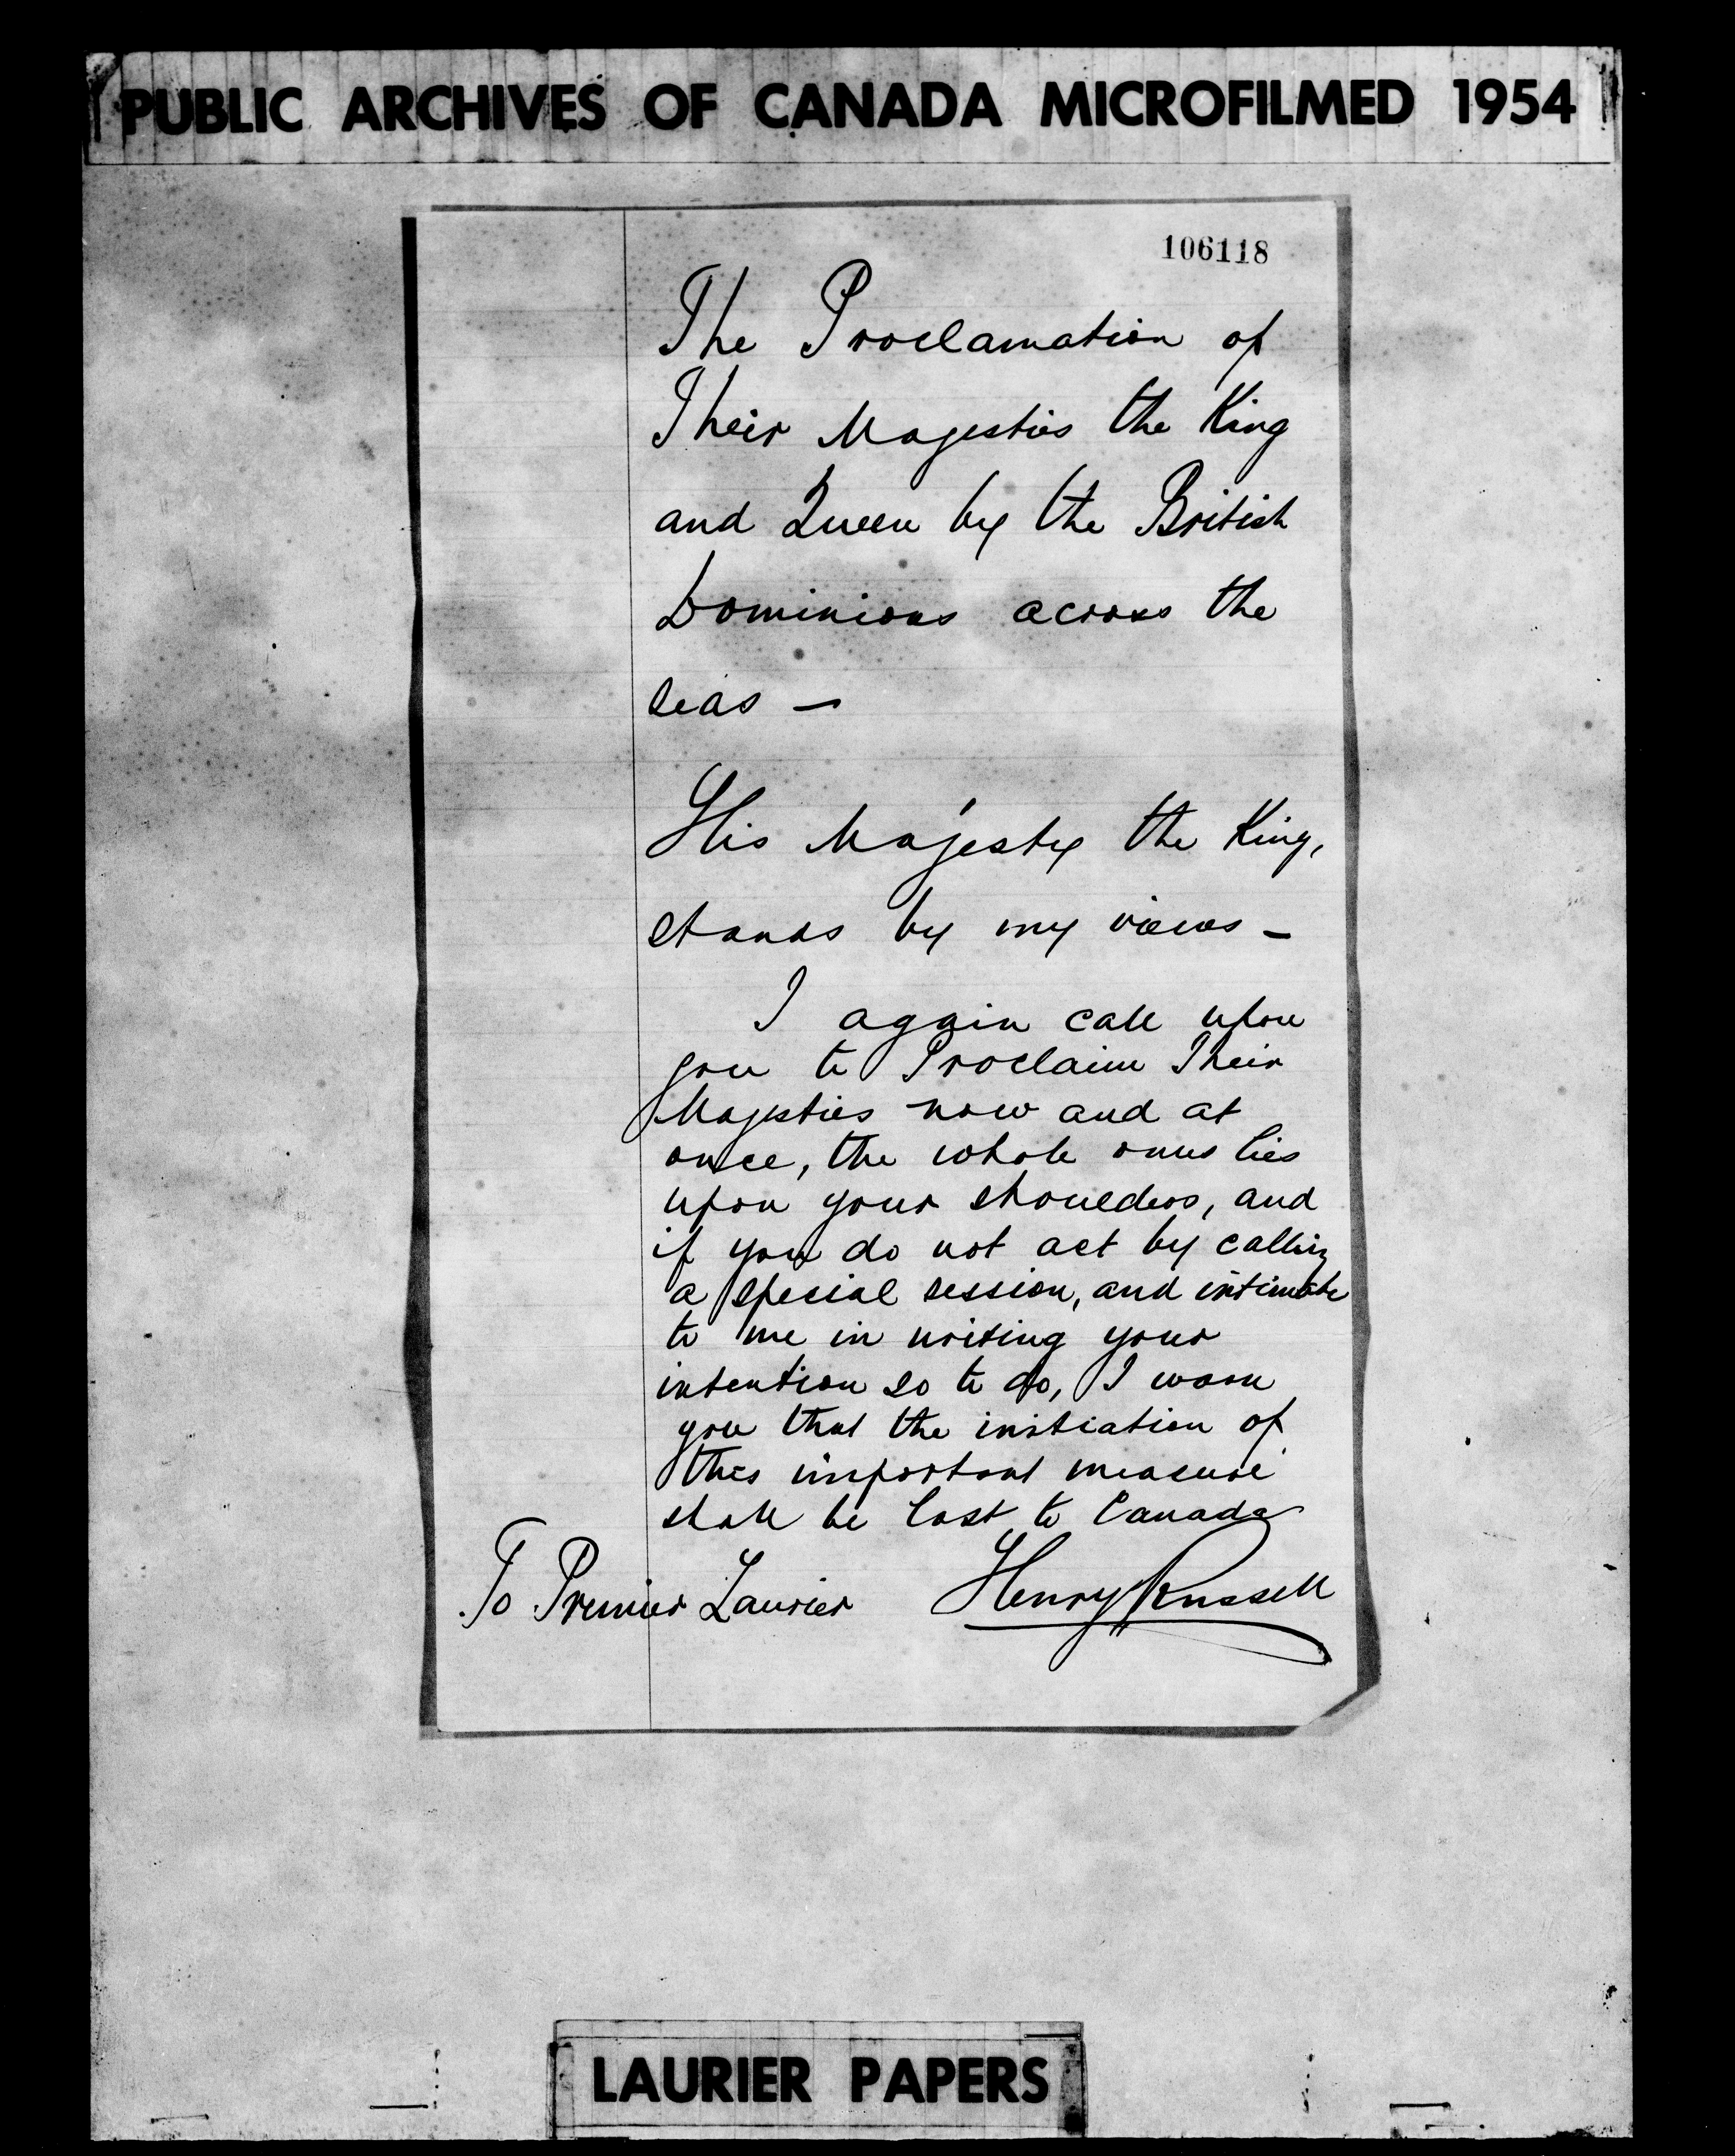 PUBLIC ARCHIVES OF CANADA MICROFILMED 1954
106118
The Proclamation of
Their Majesties the King
and Queen by the British
Dominions across the
seas —
His Majesty the King,
stands by my views —
I again call upon
you to Proclaim Their
Majesties now and at
once, the whole onus lies
upon your shoulders, and
if you do not act by calling
a special session, and intimate
to me in writing your
intention so to do, I warn
you that the initiation of
this important measure
shall be lost to Canada
To Premier Laurier Henry Russell
LAURIER PAPERS